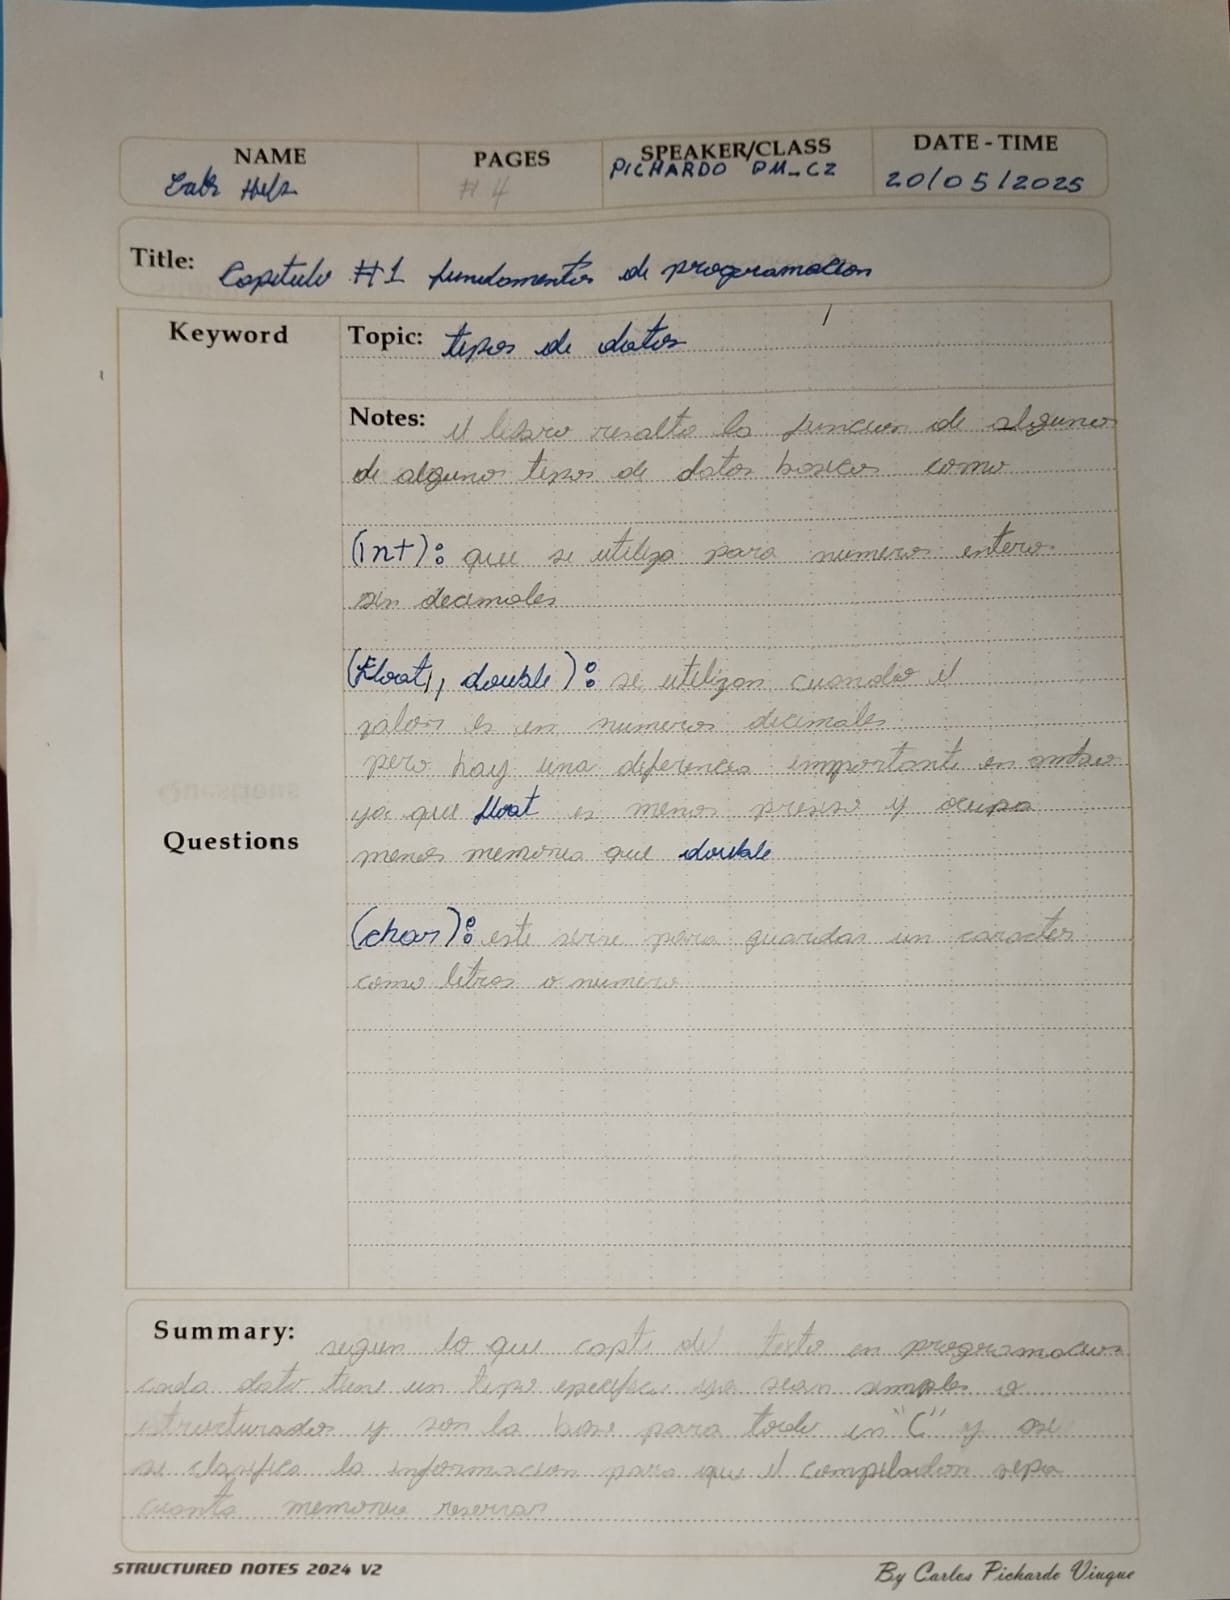 NAME PAGES SPEAKER/CLASS DATE - TIME
# 4 PICHARDO PM-CZ 20/05/2025
Title: Capitulo #1 fundamentos de programacion
Keyword Topic: tipos de datos
Notes: el libro resalta la funcion de algunos
de algunos tipos de datos basicos como
(int): que se utiliza para numeros enteros
sin decimales
(float, double): se utilizan cuando el
valor es en numeros decimales
pero hay una diferencia importante en ambos
ya que float es menos preciso y ocupa
Questions menos memoria que double
(char): este sirve para guardar un caracter
como letras o numero
Summary: segun lo que capte del texto en programacion
cada dato tiene un tipo especifico ya sean simples o
estructurados y son la base para todo en "C" y asi
se clasifica la informacion para que el compilador sepa
cuanta memoria reservar
STRUCTURED NOTES 2024 V2 By Carlos Pichardo Viuque